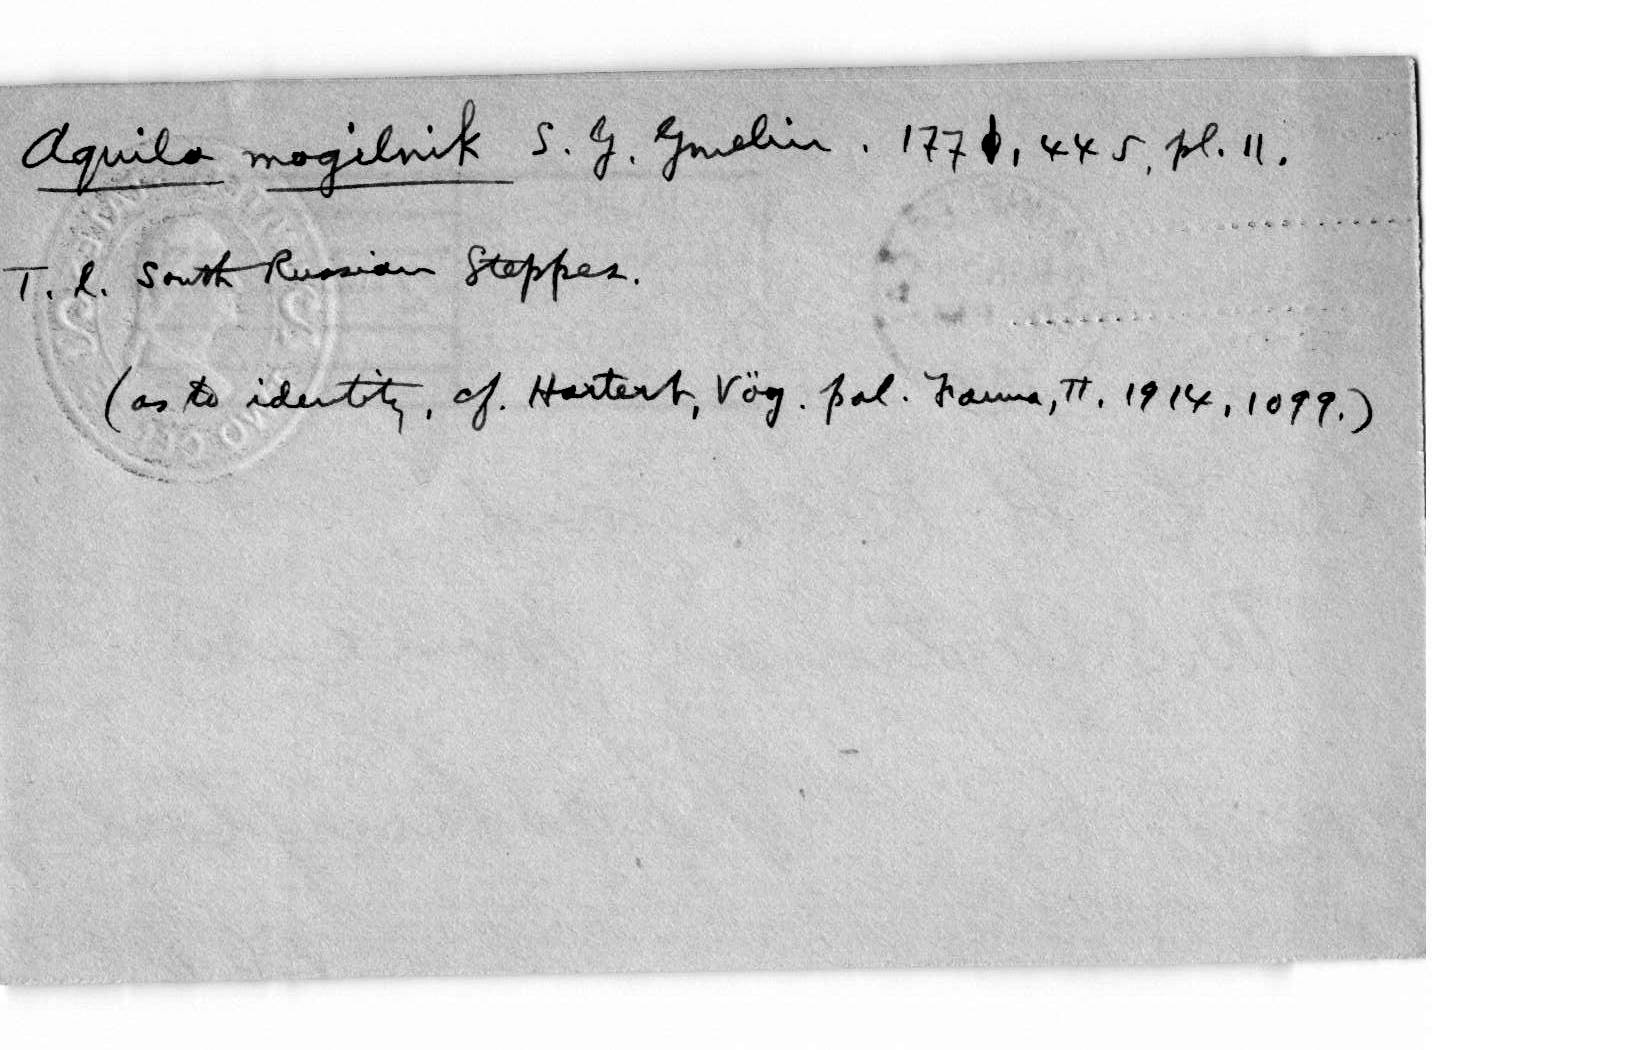 Aquila mogilnik S. G. Gmelin. 1771, 445, pl. 11.
T. l. South Russian Steppes.
(as to identity, cf. Hartert, Vög. pal. Fauna, II. 1914, 1099.)